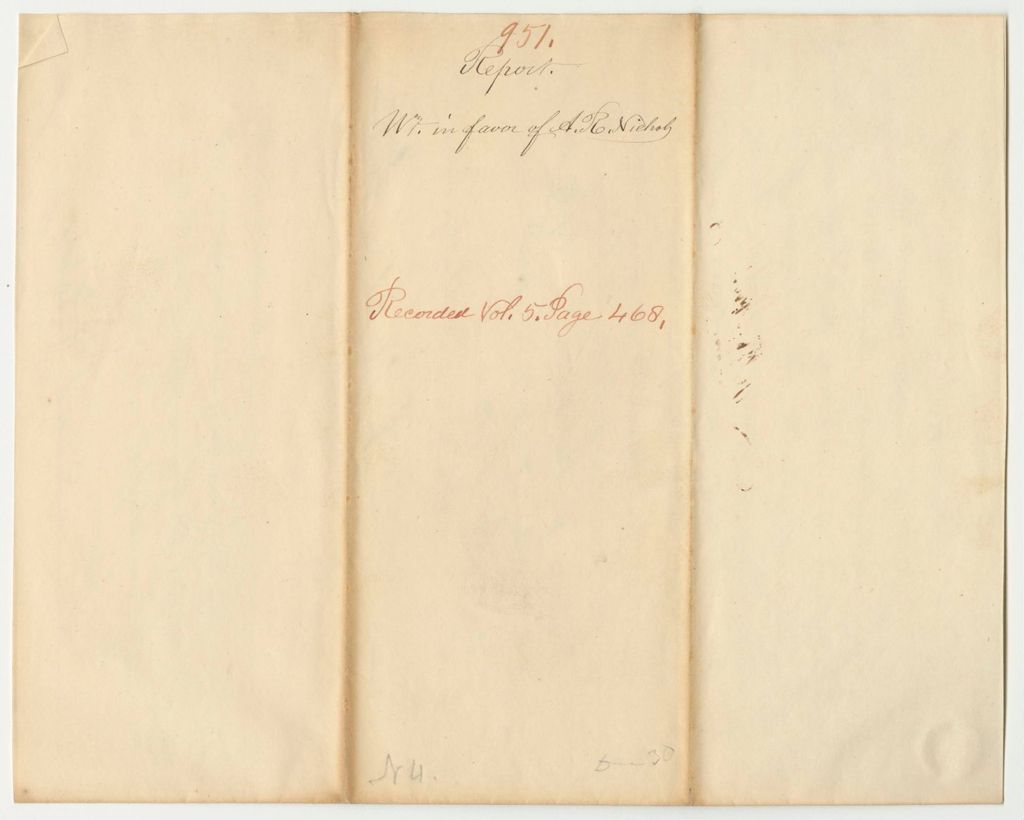 951.
Report.
Wt. in favor of A. R. Nichols
Recorded Vol. 5. Page 468,
N 4.
30